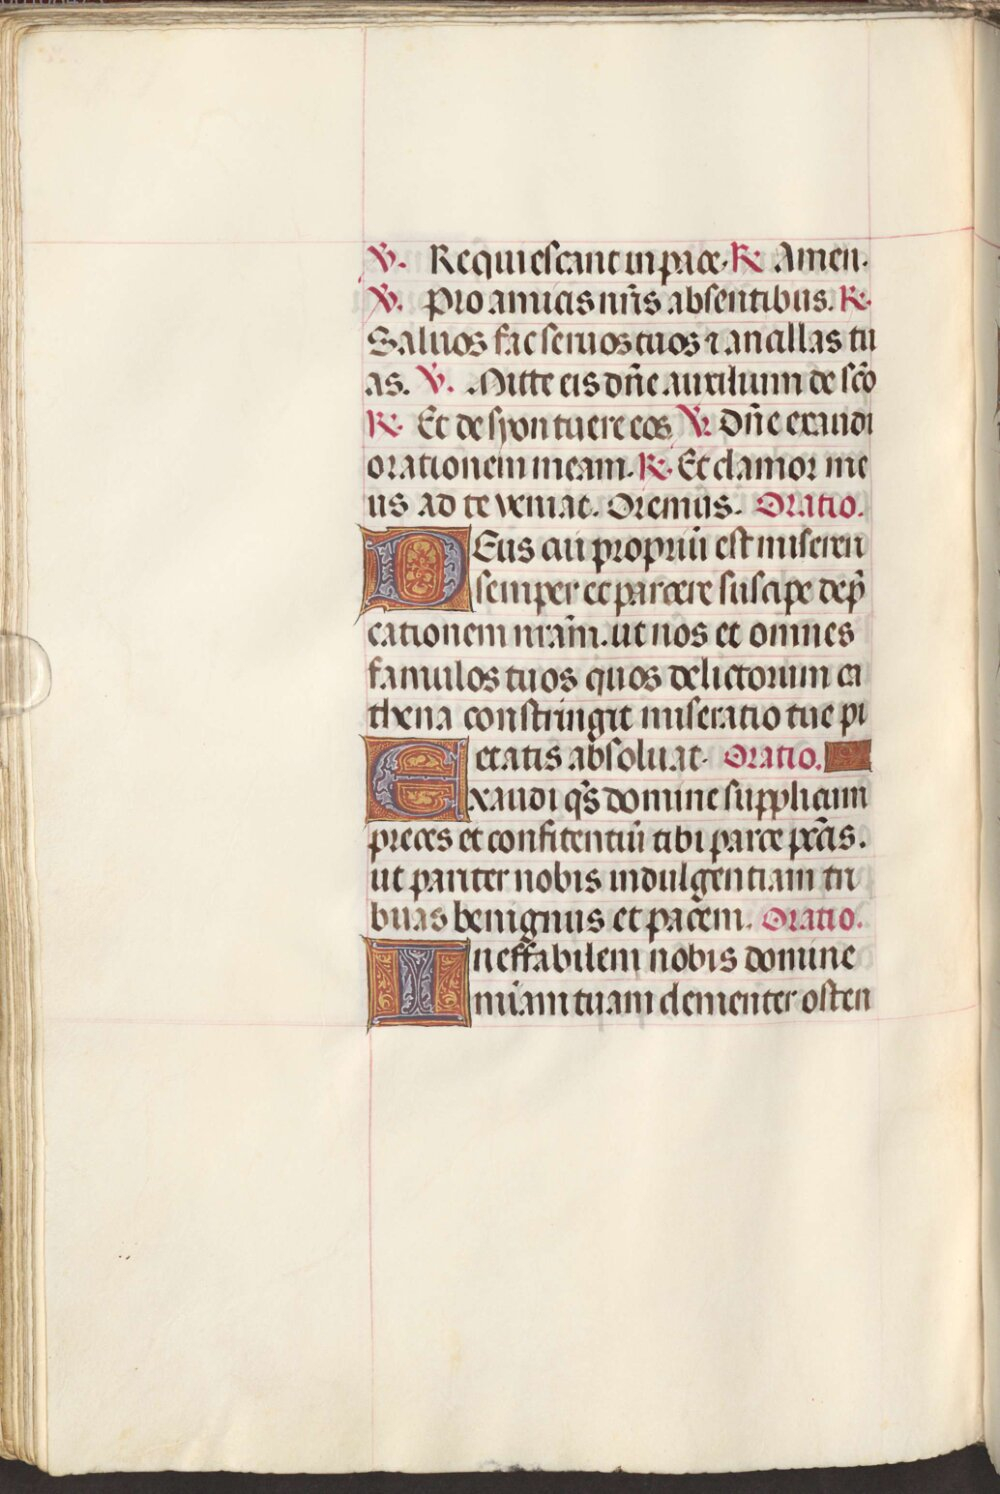 ℣. Requiescant in pace. ℟. Amen.
℣. Pro amicis nr̃is absentibus. ℟.
Saluos fac seruos tuos ⁊ ancillas tu
as. ℣. Mitte eis dñe auxilium de sc̃o
℟. Et de syon tuere eos ℣. Dñe exaudi
orationem meam. ℟. Et clamor me
us ad te veniat. Oremus. Oratio.
DEus cui propriũ est misereri
semper et parcere suscipe dep̃
cationem nram̃. ut nos et omnes
famulos tuos quos delictorum ca
thena constringit miseratio tue pi
etatis absoluat. Oratio.
Exaudi q̃s domine supplicum
preces et confitentiũ tibi parce pcc̃is.
ut pariter nobis indulgentiam tri
buas benignus et pacem. Oratio.
Ineffabilem nobis domine
mĩam tuam clementer osten